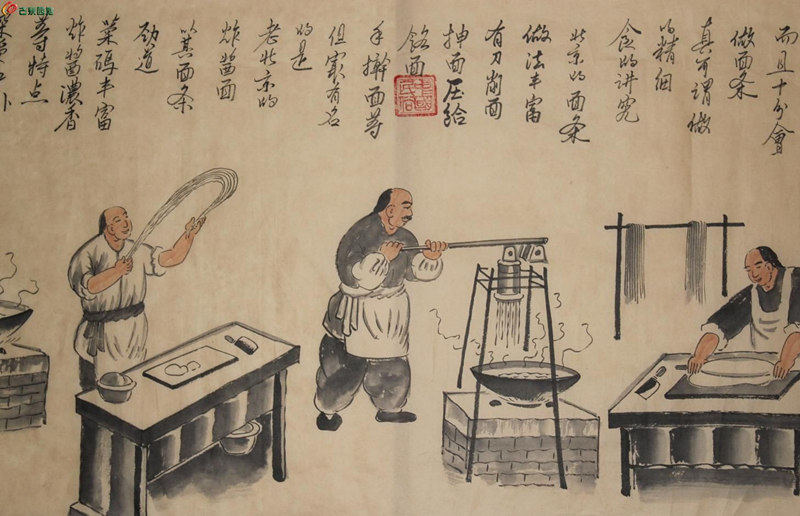 而且十分會
做面条
真可謂做
的精细
食的讲究
北京的面条
做法丰富
有刀削面
抻面压给
餎面
手擀面等
但最有名
的是
老北京的
炸醬面
以其面条
劲道
菜碼丰富
炸醬濃香
等特点